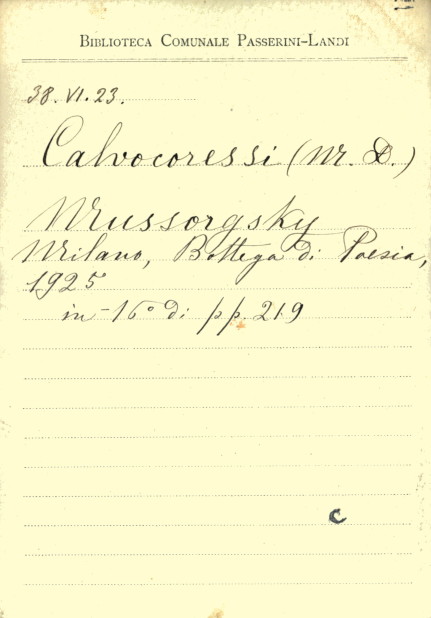 BIBLIOTECA COMUNALE PASSERINI-LANDI
38.VI.23.
Calvocoressi (M. D.)
Mussorgsky
Milano, Bottega di Poesia,
1925
in-16° di pp. 219
C